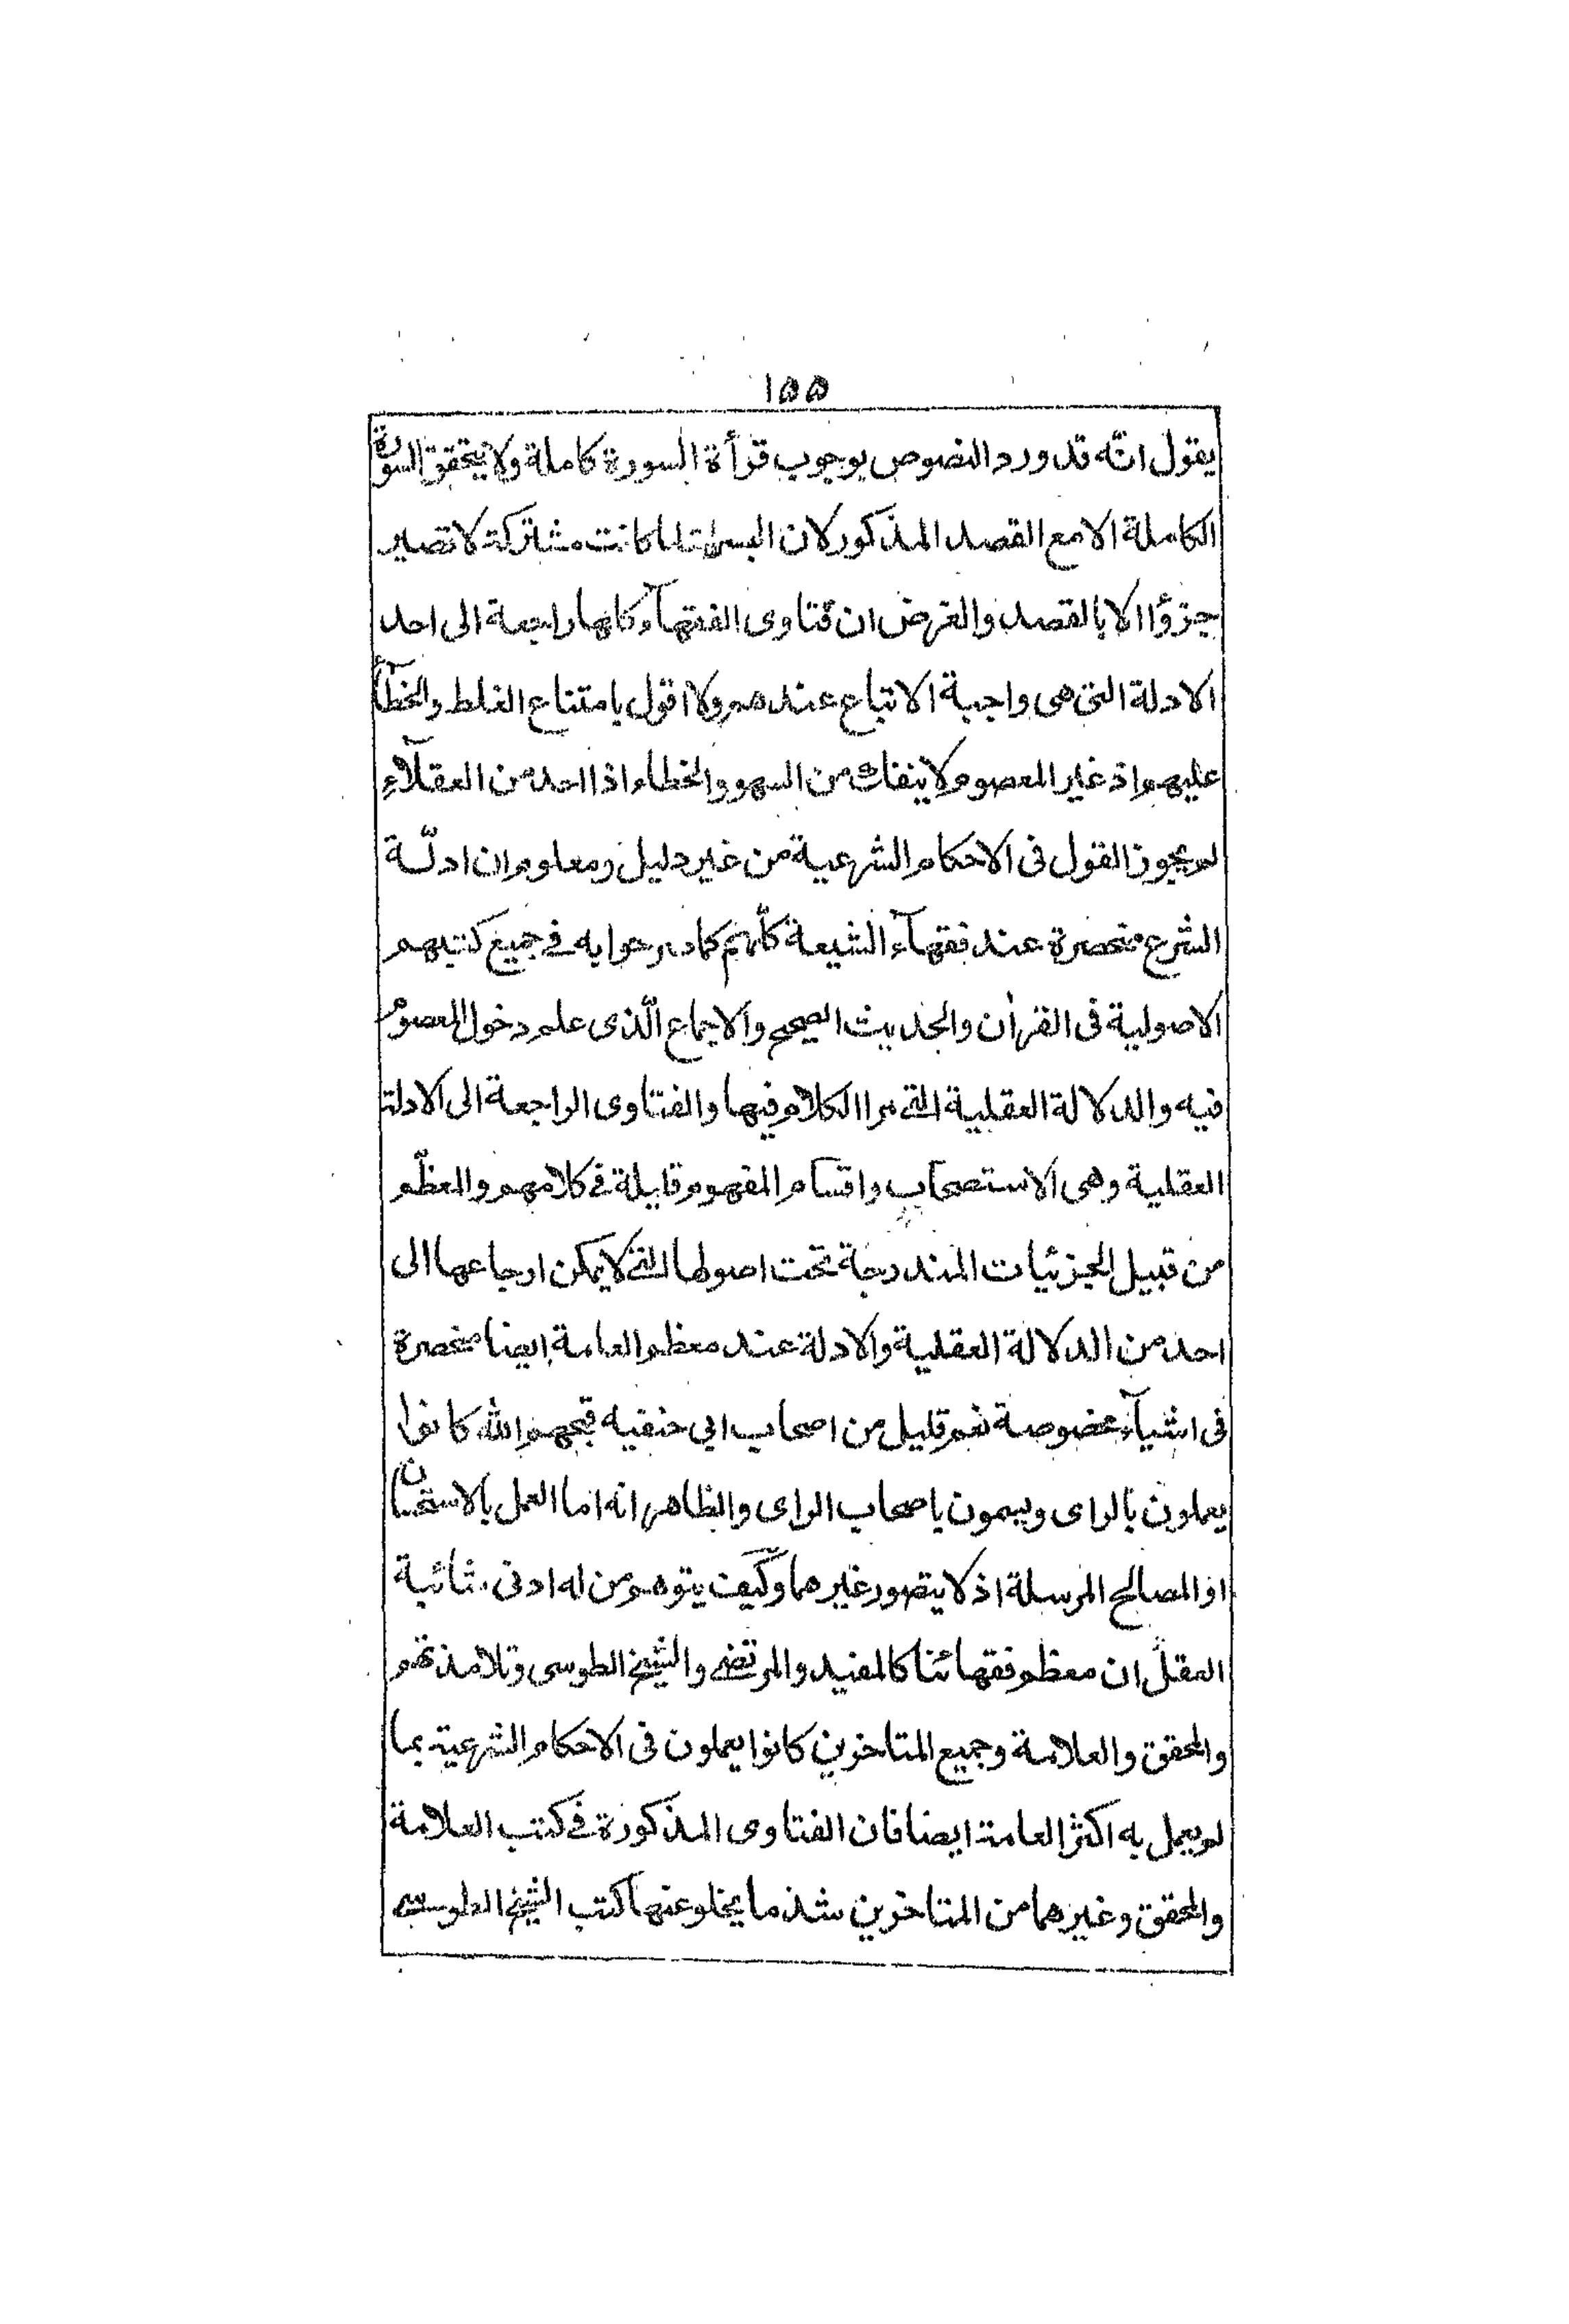 ١٥٥
يقول انّه قد ورد النصوص بوجوب قرأة السورة كاملة ولا يتحقق السورة
الكاملة الا مع القصد المذكور لان البسملة لما كانت مشتركة لا تصير
جزؤا الا بالقصد والغرض ان فتاوى الفقهآء كلها راجعة الى احد
الادلة التى هى واجبة الاتباع عندهم ولا اقول بامتناع الغلط والخطآء
عليهم اذ غير المعصوم لا ينفك من السهو والخطاء اذا احد من العقلآء
لم يجوز القول فى الاحكام الشرعية من غير دليل ومعلوم ان ادلّة
الشرع منحصرة عند فقهآء الشيعة كلّهم كما صرحوا به فى جميع كتبهم
الاصولية فى القرأن والحديث الصحيح والاجماع الّذى علم دخول المعصوم
فيه والدلالة العقلية التى مر الكلام فيها والفتاوى الراجعة الى الادلة
العقلية وهى الاستصحاب واقسام المفهوم قليلة فى كلامهم والمعظّم
من قبيل الجزئيات المندرجة تحت اصولها التى لا يمكن ارجاعها الى
احد من الدلالة العقلية والادلة عند معظم العامة ايضا منحصرة
فى اشيآء مخصوصة نعم قليل من اصحاب ابى حنفيه قبحهم الله كانوا
يعملون بالراى ويسمون باصحاب الراى والظاهر انه اما العمل بالاستحسان
او المصالح المرسلة اذ لا يتصور غيرهما وكيف يتوهم من له ادنى شائبة
العقل ان معظم فقهائنا كالمفيد والمرتضى والشيخ الطوسى وتلامذتهم
والمحقق والعلامة وجميع المتاخرين كانوا يعملون فى الاحكام الشرعية بما
لم يعمل به اكثر العامة ايضا فان الفتاوى المذكورة فى كتب العلامة
والمحقق وغيرهما من المتاخرين شذ ما يخلو عنها كتب الشيخ الطوسى